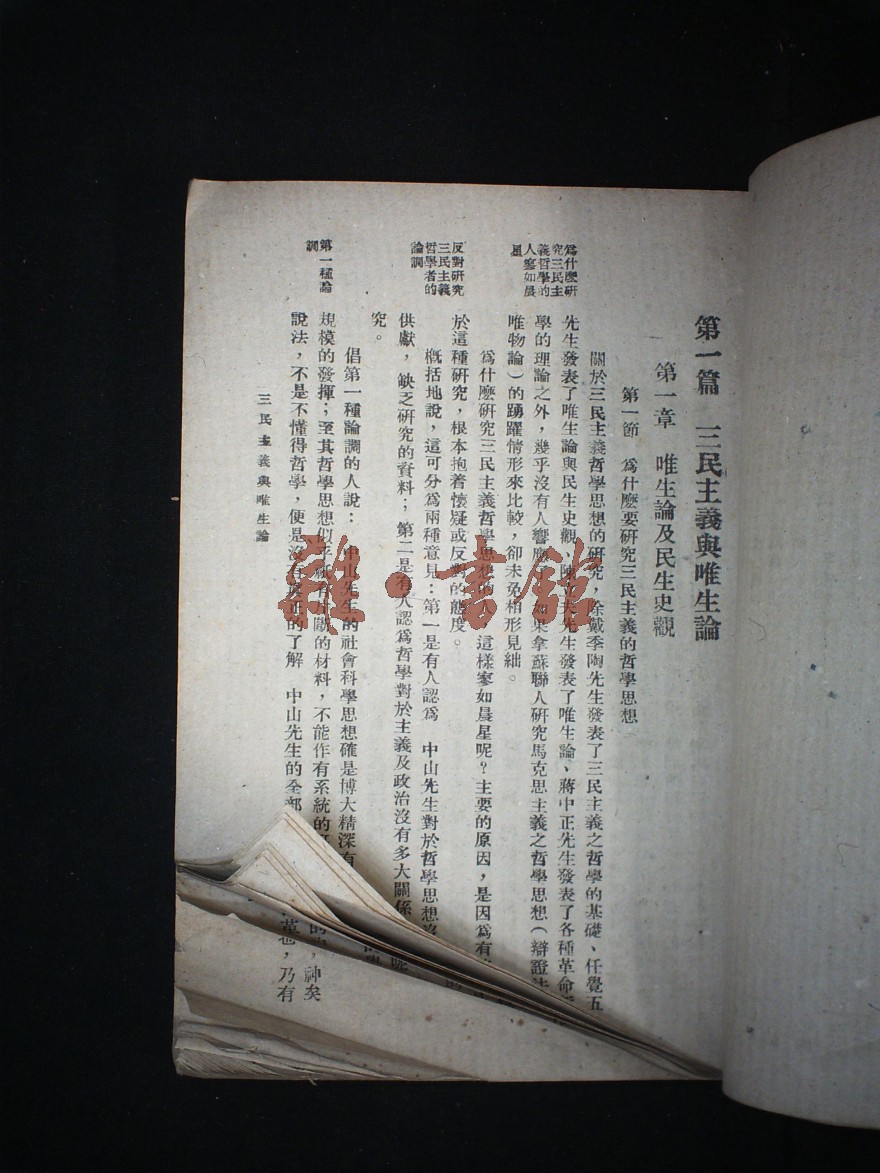 第一篇　三民主義與唯生論
第一章　唯生論及民生史觀
第一節　為什麼要研究三民主義的哲學思想
為什麼研
究三民主
義哲學的
人寥如晨
星
關於三民主義哲學思想的研究，除戴季陶先生發表了三民主義之哲學的基礎、任覺五
先生發表了唯生論與民生史觀、陳立夫先生發表了唯生論、蔣中正先生發表了各種革命哲
學的理論之外，幾乎沒有人響應了。如果拿蘇聯人研究馬克思主義之哲學思想（辯證法
唯物論）的踴躍情形來比較，卻未免相形見絀。
反對研究
三民主義
哲學者的
論調
為什麼研究三民主義哲學思想的人，這樣寥如晨星呢？主要的原因，是因為有
於這種研究，根本抱着懷疑或反對的態度。
概括地說，這可分為兩種意見：第一是有人認為　中山先生對於哲學思想沒
供獻，缺乏研究的資料；第二是有人認為哲學對於主義及政治沒有多大關係
究。
第一種論
調
倡第一種論調的人說：　中山先生的社會科學思想確是博大精深有
規模的發揮；至其哲學思想似乎祇有片斷的材料，不能作有系統的　神矣
說法，不是不懂得哲學，便是沒有真正的了解　中山先生的全部　也，乃有
三民主義與唯生論
雜·書館